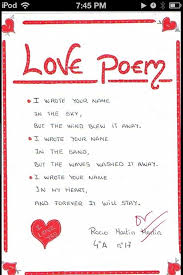 iPod 7:45 PM
LOVE POEM
I WROTE YOUR NAME
IN THE SKY,
BUT THE WIND BLEW IT AWAY.
I WROTE YOUR NAME
IN THE SAND,
BUT THE WAVES WASHED IT AWAY.
I WROTE YOUR NAME
IN MY HEART,
AND FOREVER IT WILL STAY.
I LOVE
Rocío Martín
4ºA nº17